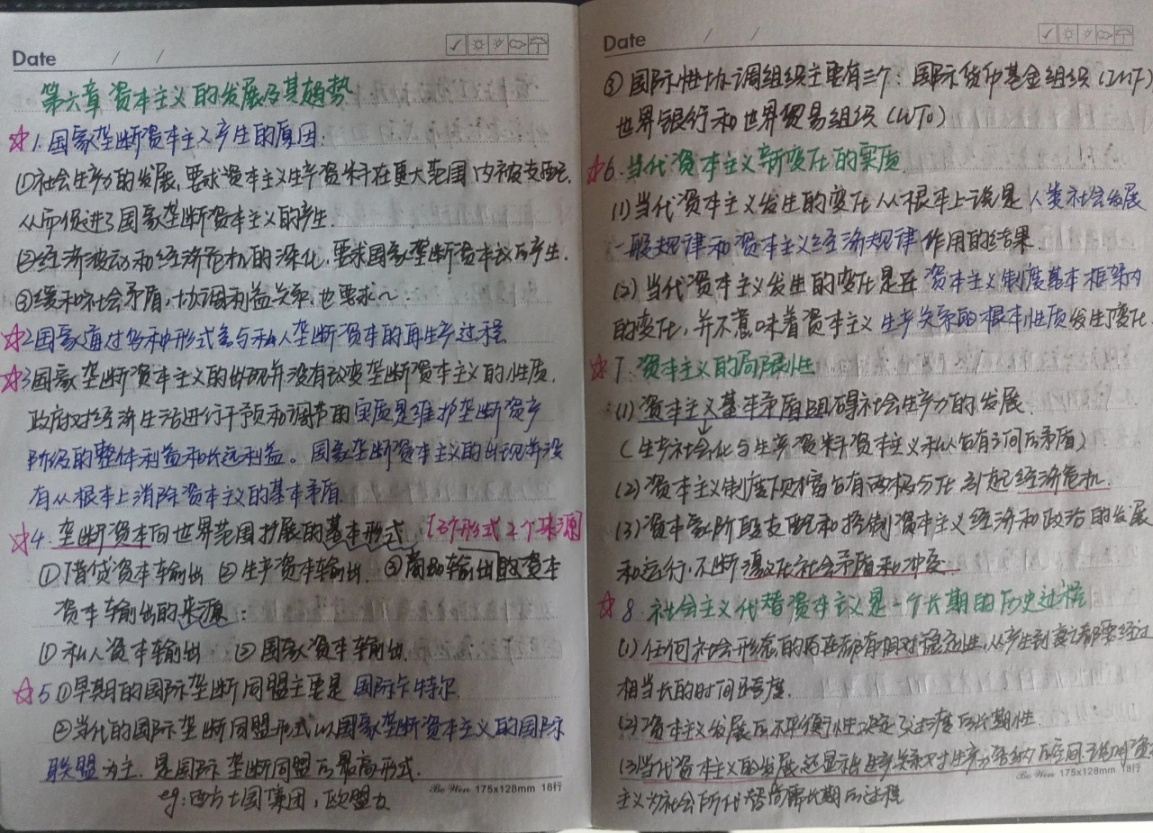 Date / /
第六章 资本主义的发展及其趋势
☆1.国家垄断资本主义产生的原因
①社会生产力的发展,要求资本主义生产资料在更大范围内被支配,
从而促进了国家垄断资本主义的产生.
②经济波动和经济危机的深化,要求国家垄断资本主义的产生.
③缓和社会矛盾,协调利益关系,也要求~.
☆2国家通过多种形式参与私人垄断资本的再生产过程
☆3国家垄断资本主义的出现并没有改变垄断资本主义的性质,
政府对经济生活进行干预和调节的实质是维护垄断资产
阶级的整体利益和长远利益。国家垄断资本主义的出现并没
有从根本上消除资本主义的基本矛盾.
☆4.垄断资本向世界范围扩展的基本形式 (3个形式2个来源)
①借贷资本输出 ②生产资本输出. ③商品资本输出
资本输出的来源:
①私人资本输出 ②国家资本输出.
☆5①早期的国际垄断同盟主要是国际卡特尔.
②当代的国际垄断同盟形式以国家垄断资本主义的国际
联盟为主.是国际垄断同盟的最高形式.
eg:西方七国集团,欧盟
Bo Wen 175x128mm 18行
Date / /
③国际性协调组织主要有三个:国际货币基金组织(IMF)
世界银行和世界贸易组织(WTO)
☆6.当代资本主义新变化的实质
(1)当代资本主义发生的变化从根本上说是人类社会发展
一般规律和资本主义经济规律作用的结果.
(2)当代资本主义发生的变化是在资本主义制度基本框架内
的变化,并不意味着资本主义生产关系的根本性质发生了变化.
☆7.资本主义的局限性
(1)资本主义基本矛盾阻碍社会生产力的发展.
(生产社会化与生产资料资本主义私人占有之间的矛盾)
(2)资本主义制度下财富占有两极分化引起经济危机.
(3)资本家阶级支配和控制资本主义经济和政治的发展
和运行,不断激化社会矛盾和冲突.
☆8.社会主义代替资本主义是一个长期的历史过程
(1)任何社会形态的存在都有相对稳定性,从产生到衰亡都要经过
相当长的时间跨度.
(2)资本主义发展的不平衡性决定了过渡的长期性.
(3)当代资本主义的发展还显示生产关系对生产力容纳的空间,说明资
主义为社会所代替尚需长期的过程
Bo Wen 175x128mm 18行